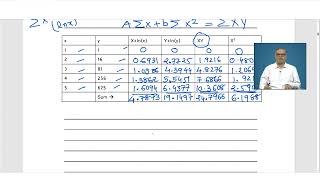 Σx (lnx) AΣx+bΣx² = ΣXY
x y X=ln(x) Y=ln(y) XY X²
1 1 0 0 0 0
2 16 0.6931 2.7725 1.9216 0.480
3 81 1.0986 4.3944 4.8276 1.206
4 256 1.3862 5.5451 7.6866 1.921
5 625 1.6094 6.4377 10.3608 2.590
Sum → 4.7873 19.1497 24.7966 6.1988